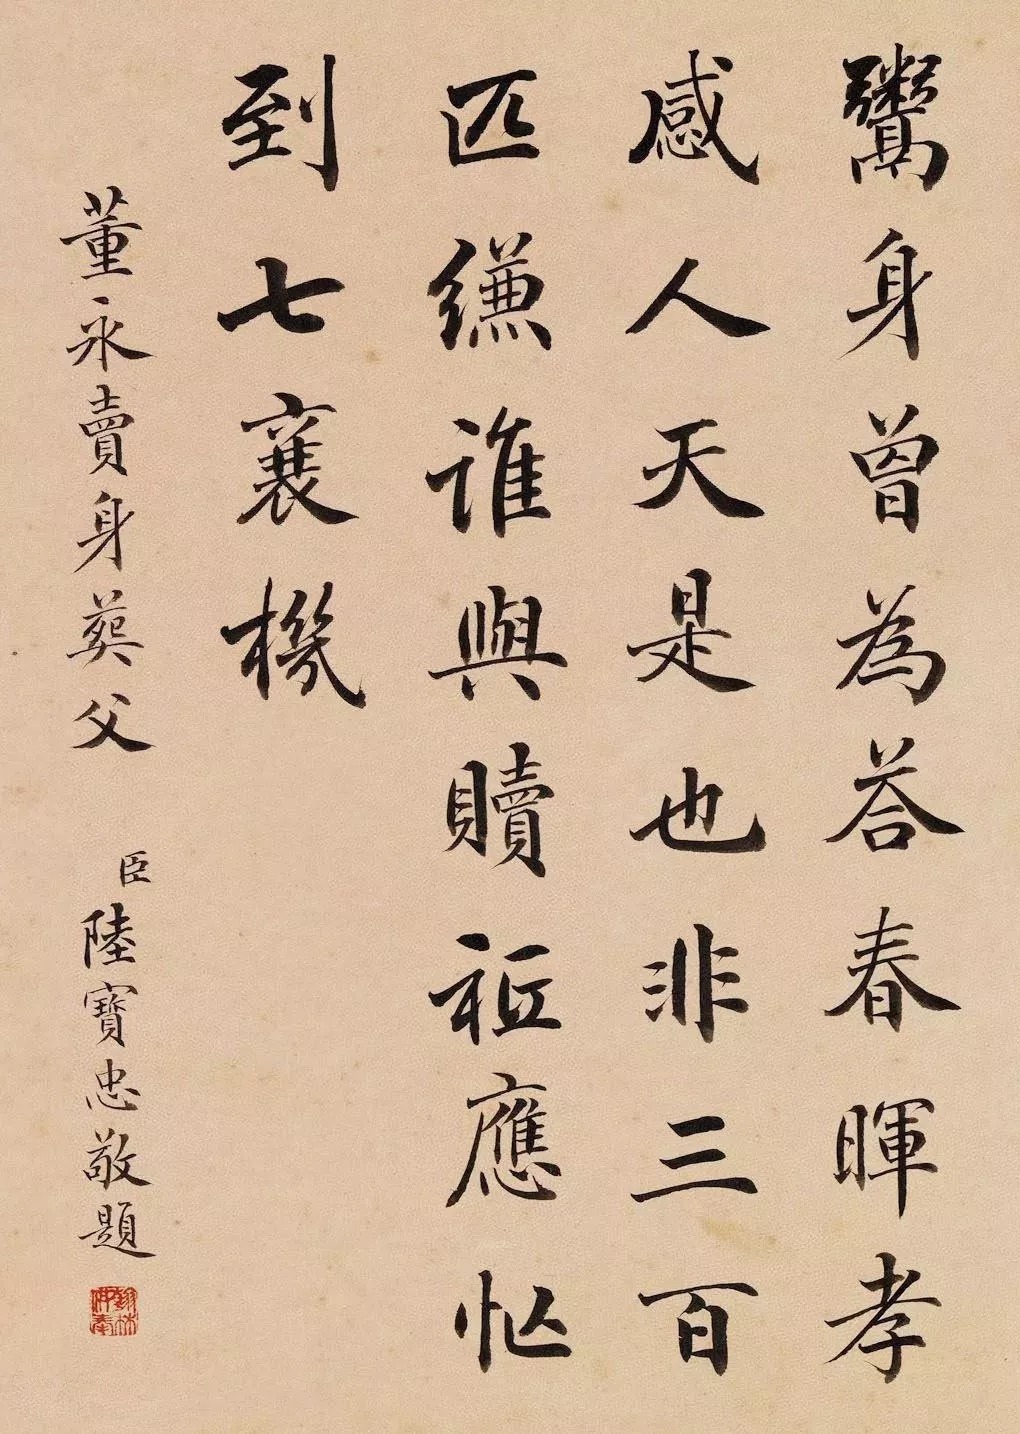 鬻身曾為答春暉孝
感人天是也非三百
匹縑誰與贖祗應忙
到七襄機
董永賣身葬父
臣陸寶忠敬題